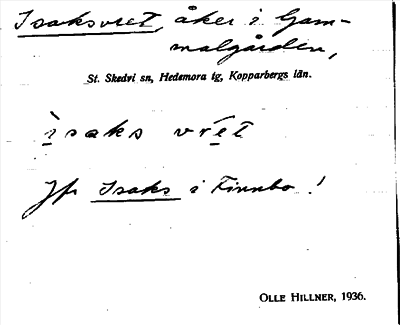 Isaksvret, åker i Gam-
malgården,
St. Skedvi sn, Hedemora tg, Kopparbergs län.
ìsaks vret
Jfr Isaks i Finnbo!
OLLE HILLNER, 1936.